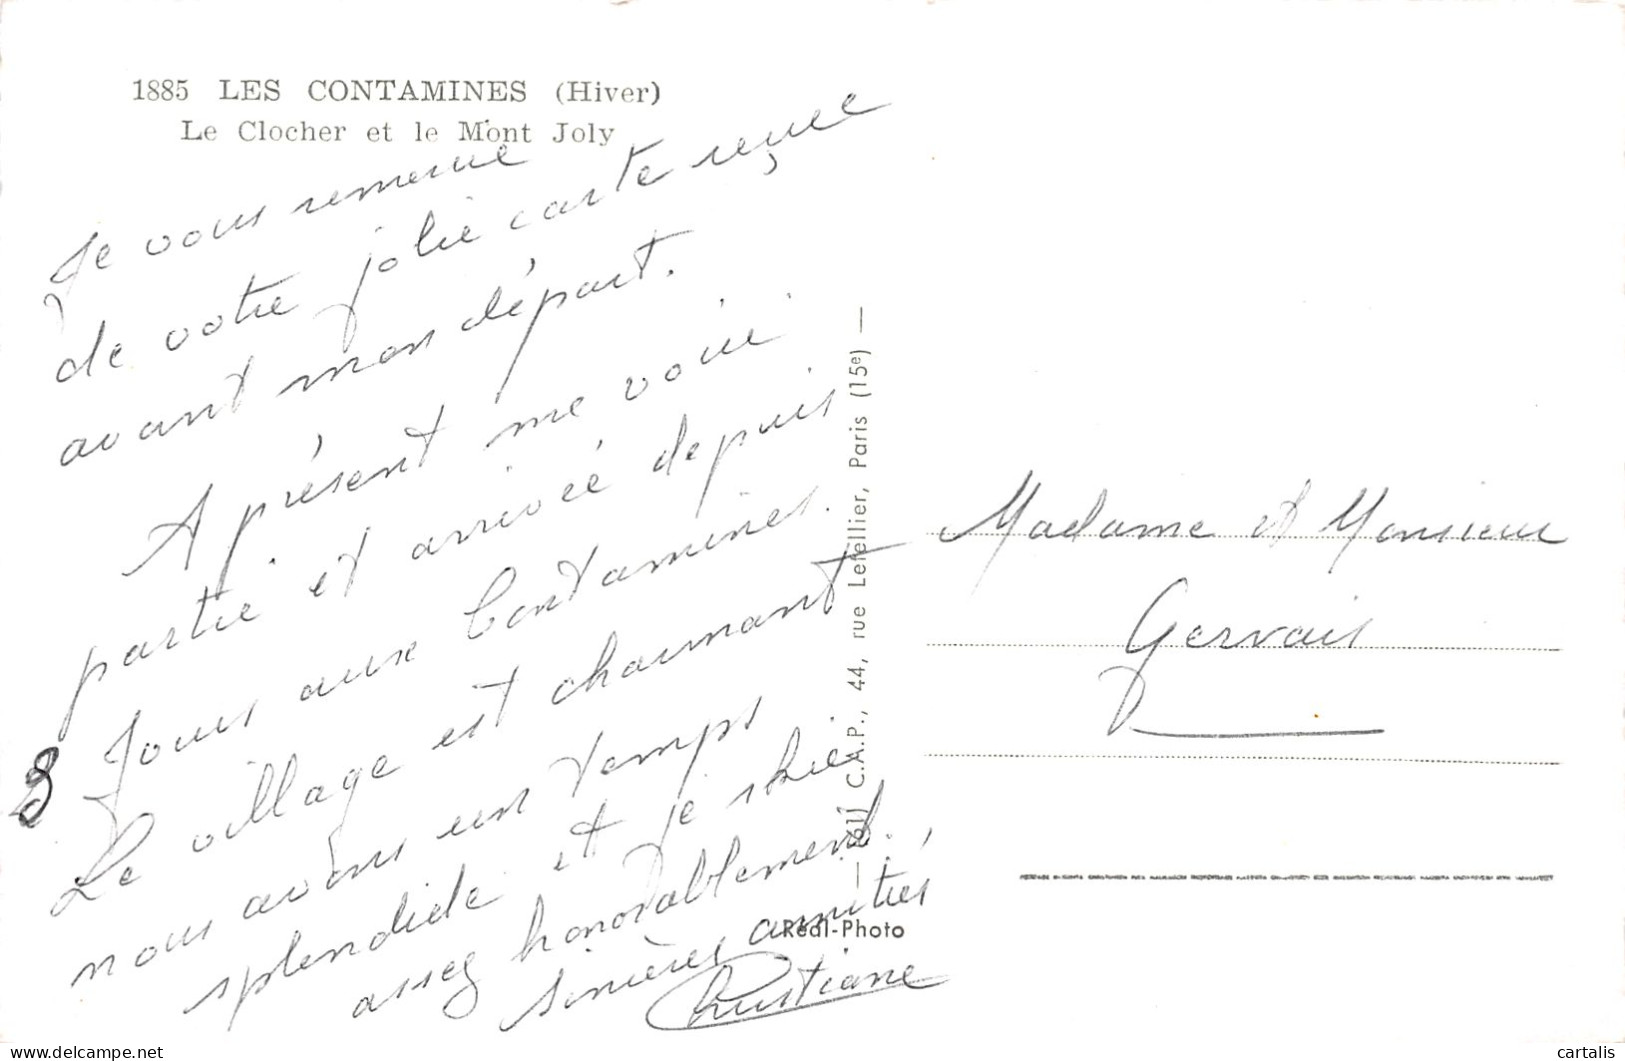 1885 LES CONTAMINES (Hiver)
Le Clocher et le Mont Joly
Je vous remercie
de votre jolie carte reçue
avant mon départ.
A présent me voici
partie et arrivée depuis
8 jours aux Contamines.
Le village est charmant
nous avons un temps
splendide et je skie
assez honorablement.
sincères amitiés
Christiane
C.A.P., 44, rue Letellier, Paris (15e) —
Réal-Photo
Madame et Monsieur
Gervais
cartalis
delcampe.net